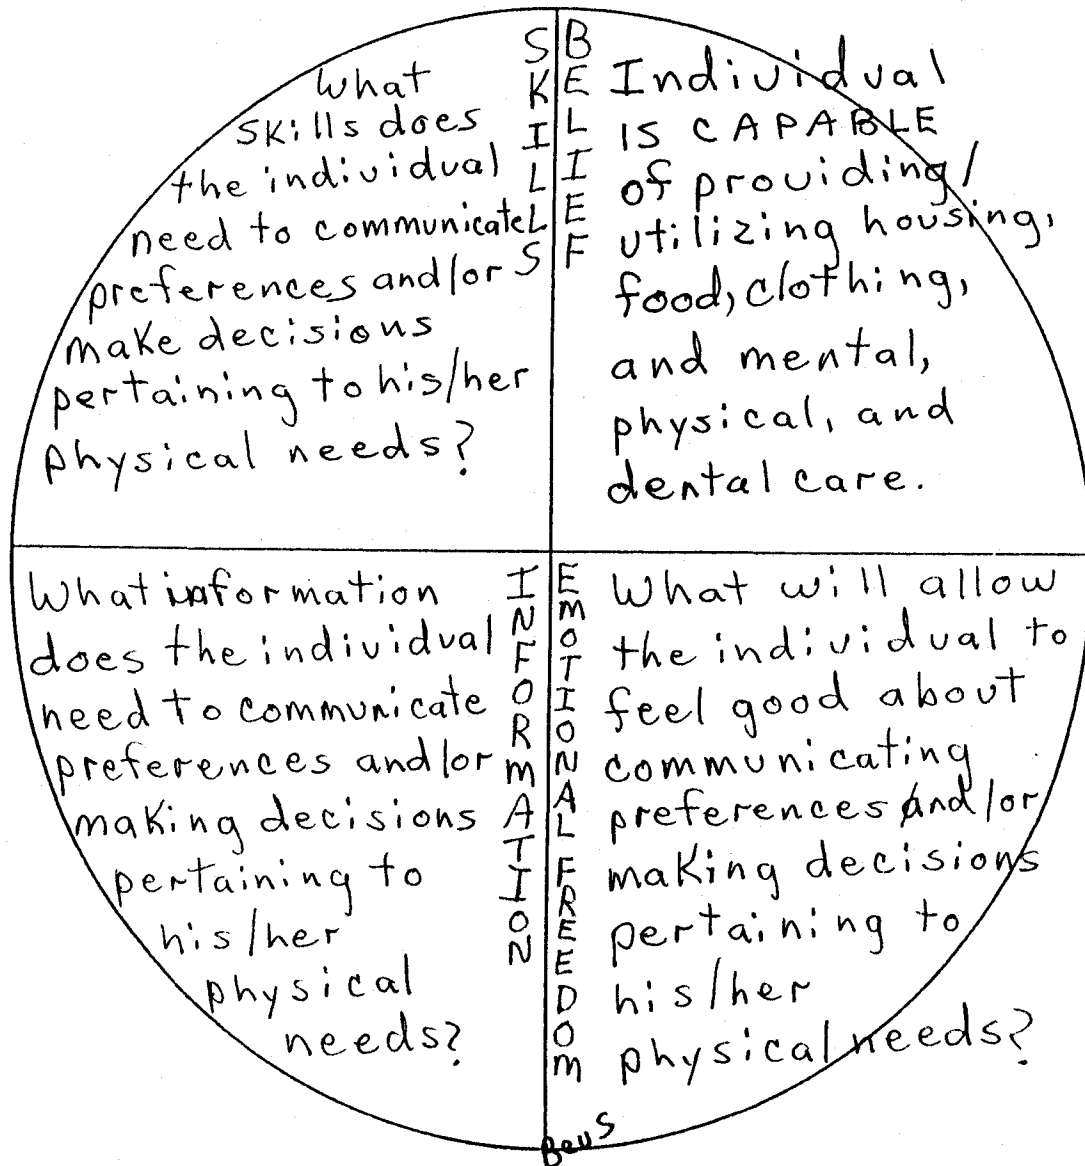 SKILLS
What
skills does
the individual
need to communicate
preferences and/or
make decisions
pertaining to his/her
physical needs?
BELIEF
Individual
IS CAPABLE
of providing/
utilizing housing,
food, clothing,
and mental,
physical, and
dental care.
INFORMATION
What information
does the individual
need to communicate
preferences and/or
making decisions
pertaining to
his/her
physical
needs?
EMOTIONAL FREEDOM
What will allow
the individual to
feel good about
communicating
preferences and/or
making decisions
pertaining to
his/her
physical needs?
Beus